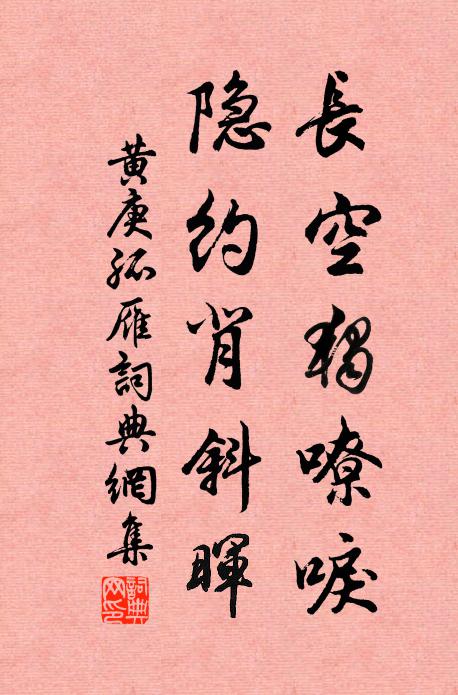 長空獨嘹唳
隐約背斜暉
黄庚孤雁詞典網集
詞典网印